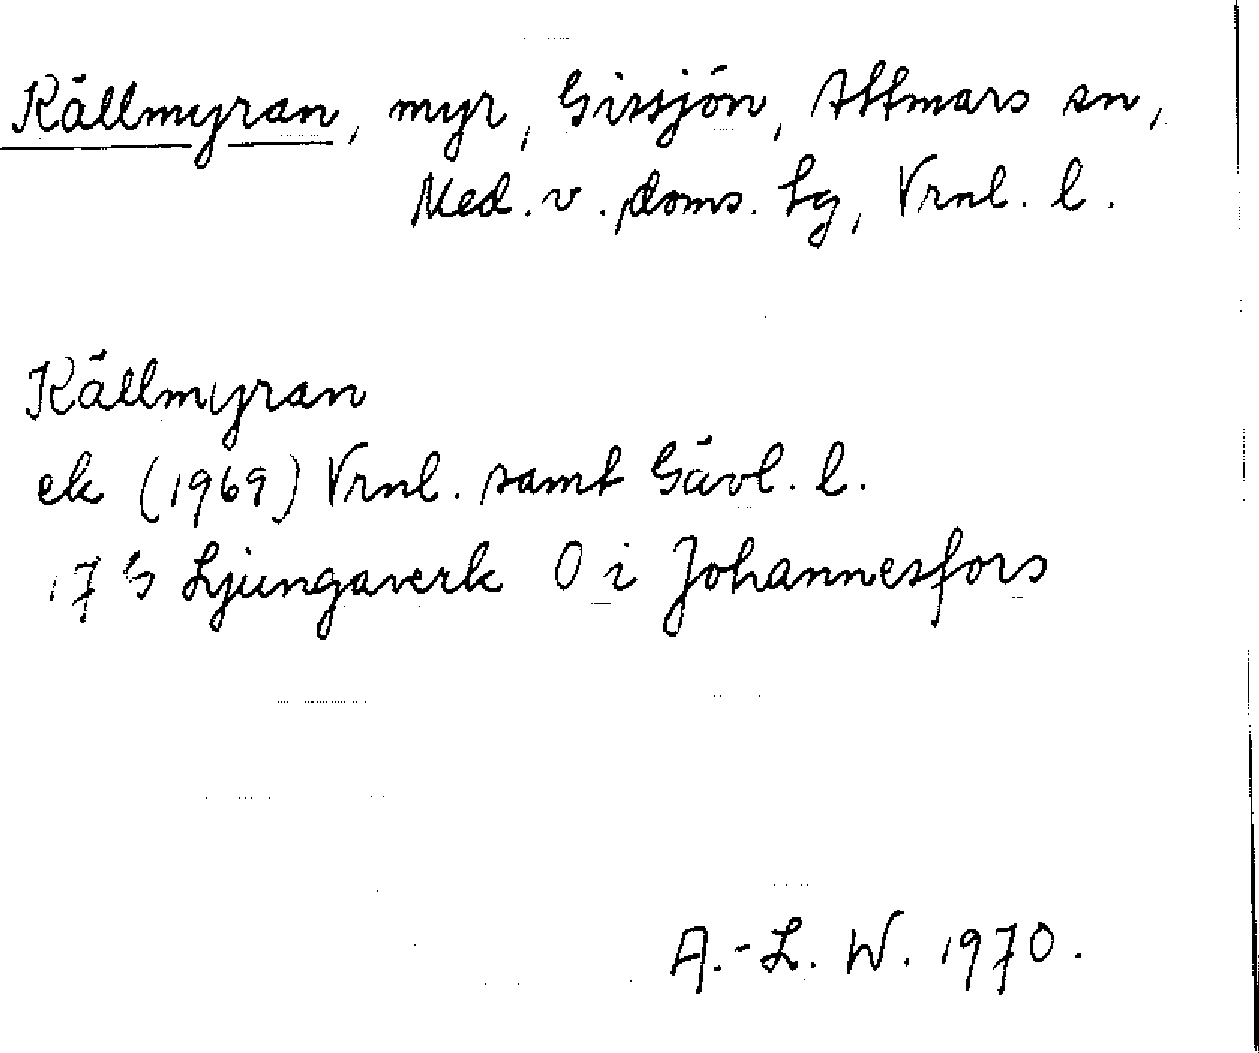 Källmyran, myr, Gissjön, Attmars sn,
Med. v. doms. lg, Vrnl. l.
Källmyran
ek (1969) Vrnl. samt Gävl. l.
17 G Ljungaverk 0 i Johannesfors
A.-L. W. 1970.